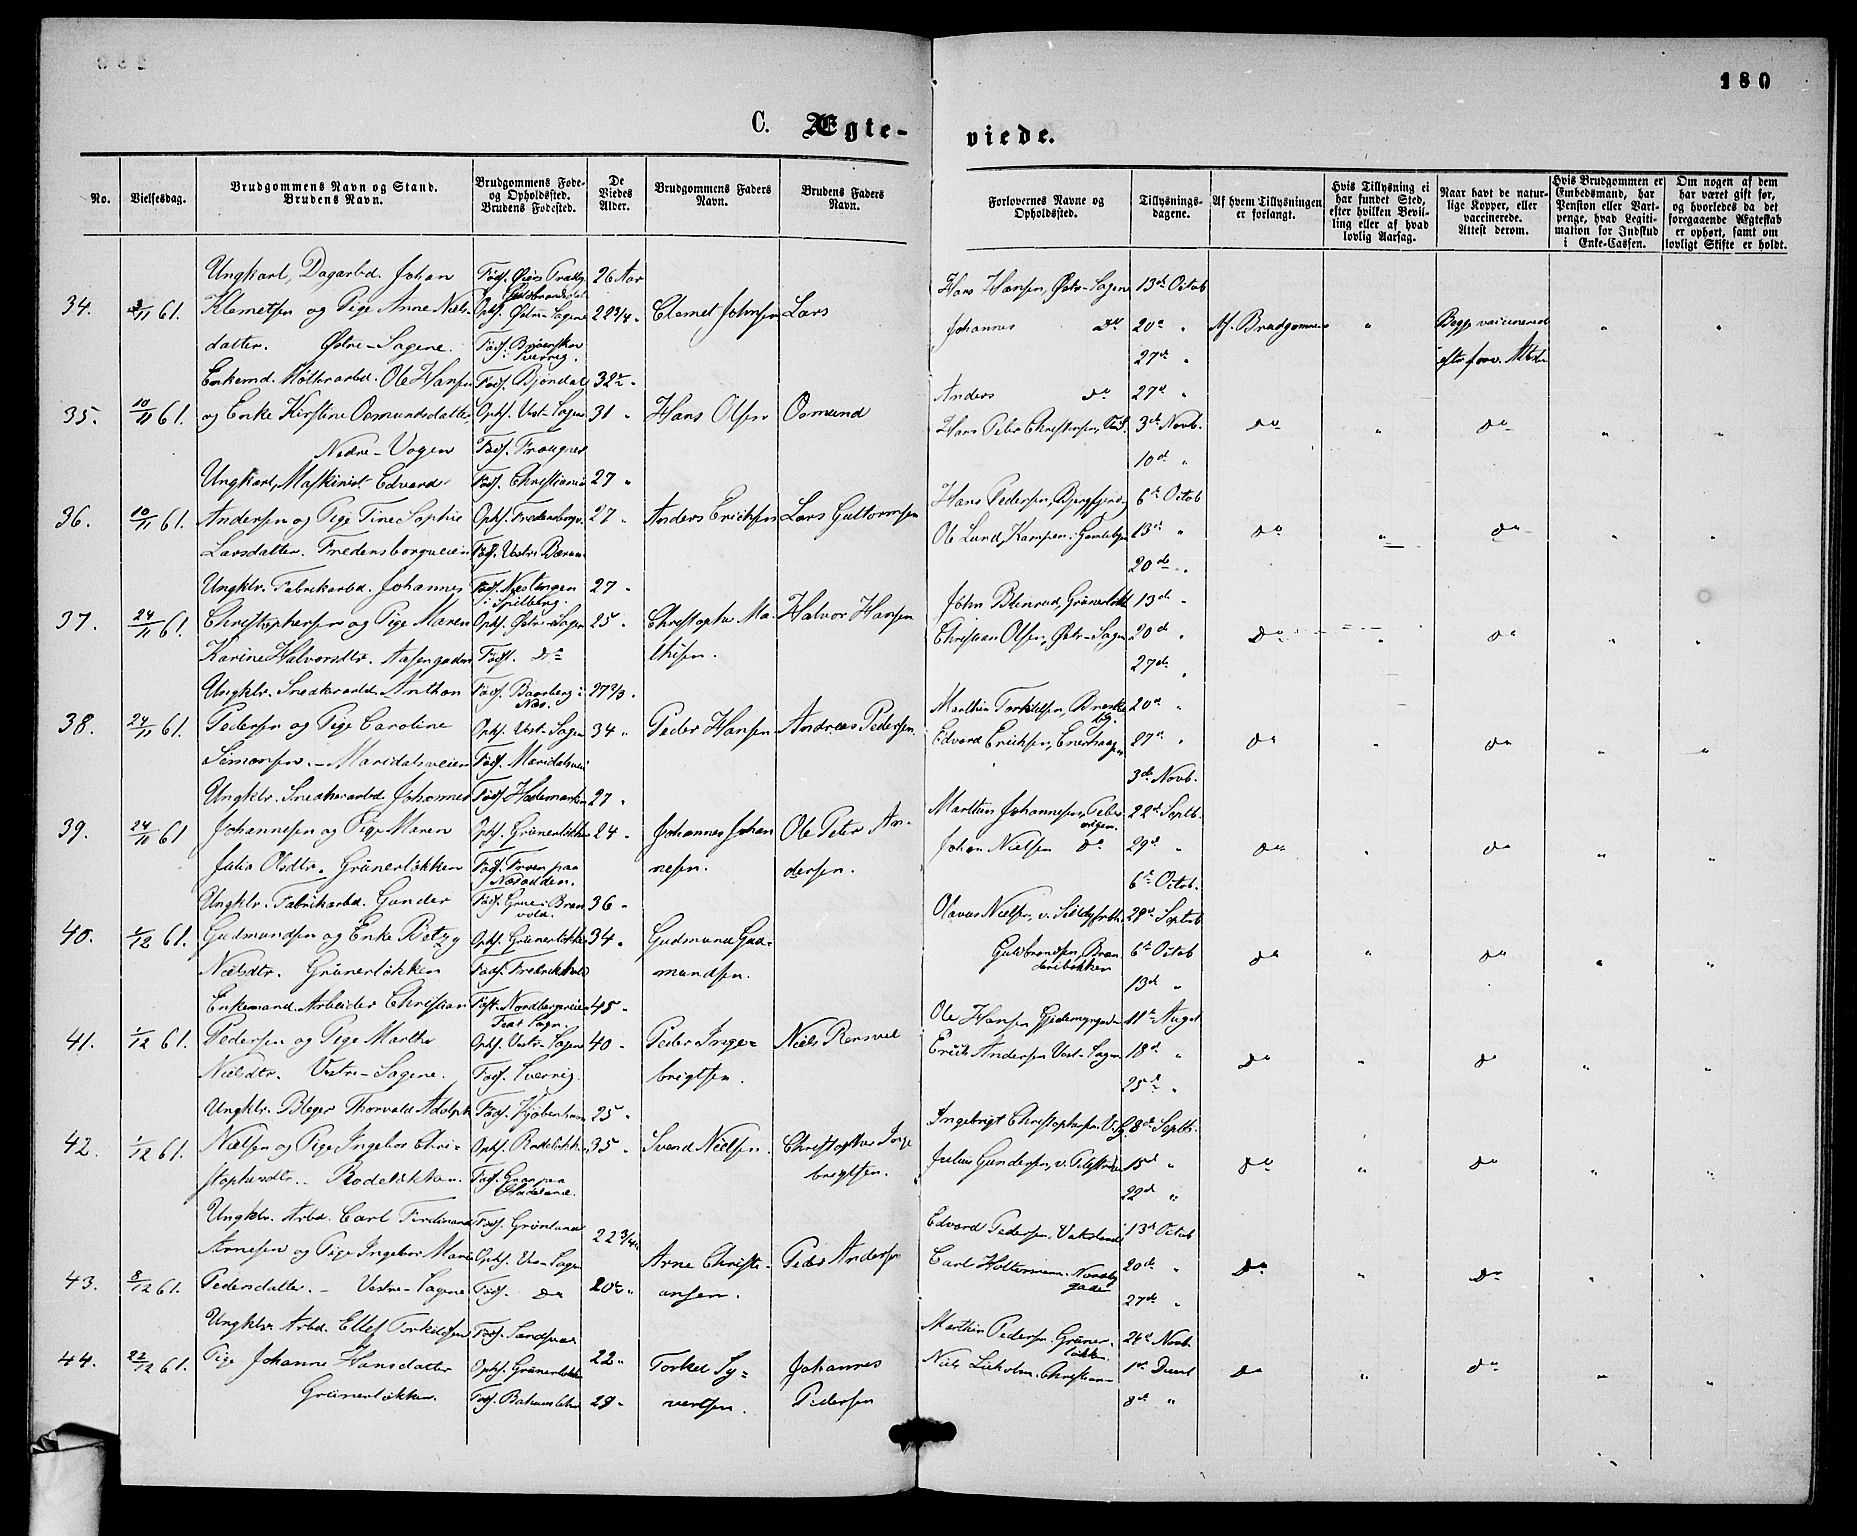 180
C. Ægte-
viede.
No.
Vielsesdag.
Brudgommens Navn og Stand.
Brudens Navn.
Brudgommens Føde-
og Opholdssted.
Brudens Fødested.
De
Viedes
Alder.
Brudgommens Faders
Navn.
Brudens Faders
Navn.
Forlovernes Navne og
Opholdssted.
Tillysnings-
dagene.
Af hvem Tillysningen
er forlangt.
Hvis Tillysning ei
har fundet Sted,
efter hvilken Bevil-
ling eller af hvad
lovlig Aarsag.
Naar havt de natur-
lige Kopper, eller
vaccinerede.
Attest derom.
Hvis Brudgommen er
Embedsmand, har
Pension eller Vart-
penge, hvad Legiti-
mation for Indskud
i Enke-Cassen.
Om nogen af dem
har været gift før,
og hvorledes da det
foregaaende Ægteskab
er ophørt, samt om
lovligt Skifte er holdt.
34.
3/11 61.
Ungkarl, Dagarbd. Johan
Klemetsen og Pige Anne Niels-
datter. Østre-Sagene.
Ophs. Østre-Sagene
26 Aar
22 3/4 "
Clemet Johnsen
Lars
Hans Hansen, Østr-Sagene
Johannes do
13de Octob
20de "
27de "
Af Brudgommen
"
Begge vaccinered
efter forev. Attester
"
"
35.
10/11 61.
Enkemd. Møllerarbd. Ole Hansen
og Enke Kirstine Osmundsdatter,
Nedre-Vogen
Opks. Vest-Sagen
Fød. Frougner
31 "
Hans Olsen
Osmund
Anders do
Hans Peter Christensen,
27de "
3de Novb.
10de "
do
"
do
"
"
36.
10/11 61.
Ungkarl, Maskinist Edvard
Andersen og Pige Tine Sophie
Larsdatter. Fredensborgveien
Føds. Christiania
Opks. Fredensborgv.
Føds. Vestre Bærum
27 "
27 "
Anders Ericksen
Lars Guttormsen
Hans Pedersen,
Ole Lund, Kampen i Gamlebyen
6te Octob
13de "
20de "
do
"
do
"
"
37.
24/11 61.
Ungklr. Fabrikarbd. Johannes
Christophersen og Pige Maren
Karine Halvorsdtr. Aasengaden
Opks. Østre-Sagen
Føds. do
27 "
25 "
Christopher Ma-
thisen.
Halvor Hansen
Christian Olsen, Østr-Sagen
13de "
20de "
27de "
do
"
do
"
"
38.
24/11 61.
Ungklr. Snedkerarbd. Anthon
Pedersen og Pige Caroline
Simonsen. - Maridalsveien
Opks. Vest-Sagen
Føds. Maridalsvei
27 2/3 "
34 "
Peder Hansen
Andreas Pedersen
Edvard Ericksen, Enerhaugen
20de "
27de "
3de Novb.
do
"
do
"
"
39.
24/10 61
Ungklr. Snedkerarbd. Johannes
Johannesen og Pige Maren
Julie Olsdtr. Grünerløkken
Føds. Hedemarken
Opks. Grünerløkken
Føds. Froen paa
Nesodden.
27 "
24 "
Johannes Johan
nesen.
Ole Peter An-
dersen.
Marthin Johannesen, Peber-
vigen.
Johan Nielsen do
22de Septb.
29de "
6te Octob.
do
"
do
"
"
40.
1/12 61.
Ungklr. Fabrikarbd. Gunder
Gudmundsen og Enke Betzy
Nielsdtr. Grünerløkken
Føds. Grue-Bran
vold.
Opks. Grünerløkken
Føds. Fredrikshald
36 "
34 "
Gudmund Gud-
mundsen.
Olavus Nielsen,
Guldbrandsen, Bran
deribakken
29de Septob
6te Octob
13de "
do
"
do
"
"
41.
1/12 61.
Enkemand. Arbeider Christian
Pedersen og Pige Marthe
Nielsdtr. Vestre-Sagene.
Opks. Vestre-Sagen
Føds. Sverrig.
45 "
40 "
Peder Inge-
brigtsen.
Niels
Ole Hansen
Erick Andersen Vest-Sagen
11te Augst
18de "
25de "
do
"
do
"
"
42.
1/12 61.
Ungklr. Bleger Thorvald Adolph
Nielsen og Pige Ingebor Chri-
stophersdtr. - Rodeløkken.
Føds. Kjøbenhavn
Opks. Rodeløkken
Føds. Gran paa
Hadeland.
25 "
35 "
Svend Nielsen.
Christopher Inge
brigtsen.
Ingebrigt Christophersen
Julius Gundersen,
8de Septb.
15de "
22de "
do
"
do
"
"
43.
8/12 61.
Ungklr. Arbd. Carl Ferdinand
Arnesen og Pige Ingebor Marie
Pedersdatter. - Vestre-Sagene
Føds. Grønland
Opks. Ves-Sagen
Føds. do
22 3/4 "
Arne Christi-
ansen.
Peder Andersen
Edvard Pedersen, Vaksland
Carl Holtermann, Norby
gade
13de Octob
20de "
27de "
do
"
do
"
"
44.
22/12 61.
Ungklr. Arbd. Ellef Torkildsen
Pige Johanne Hansdatter
Grünerløkken.
Opks. Grünerløkken
Føds. Bahuuslehn
22 "
29 "
Torkel Sy-
vertsen.
Johannes
Pedersen
Marthin Pedersen. Grüner
løkken.
24de Novb.
1ste Decel
8de "
do
"
do
"
"